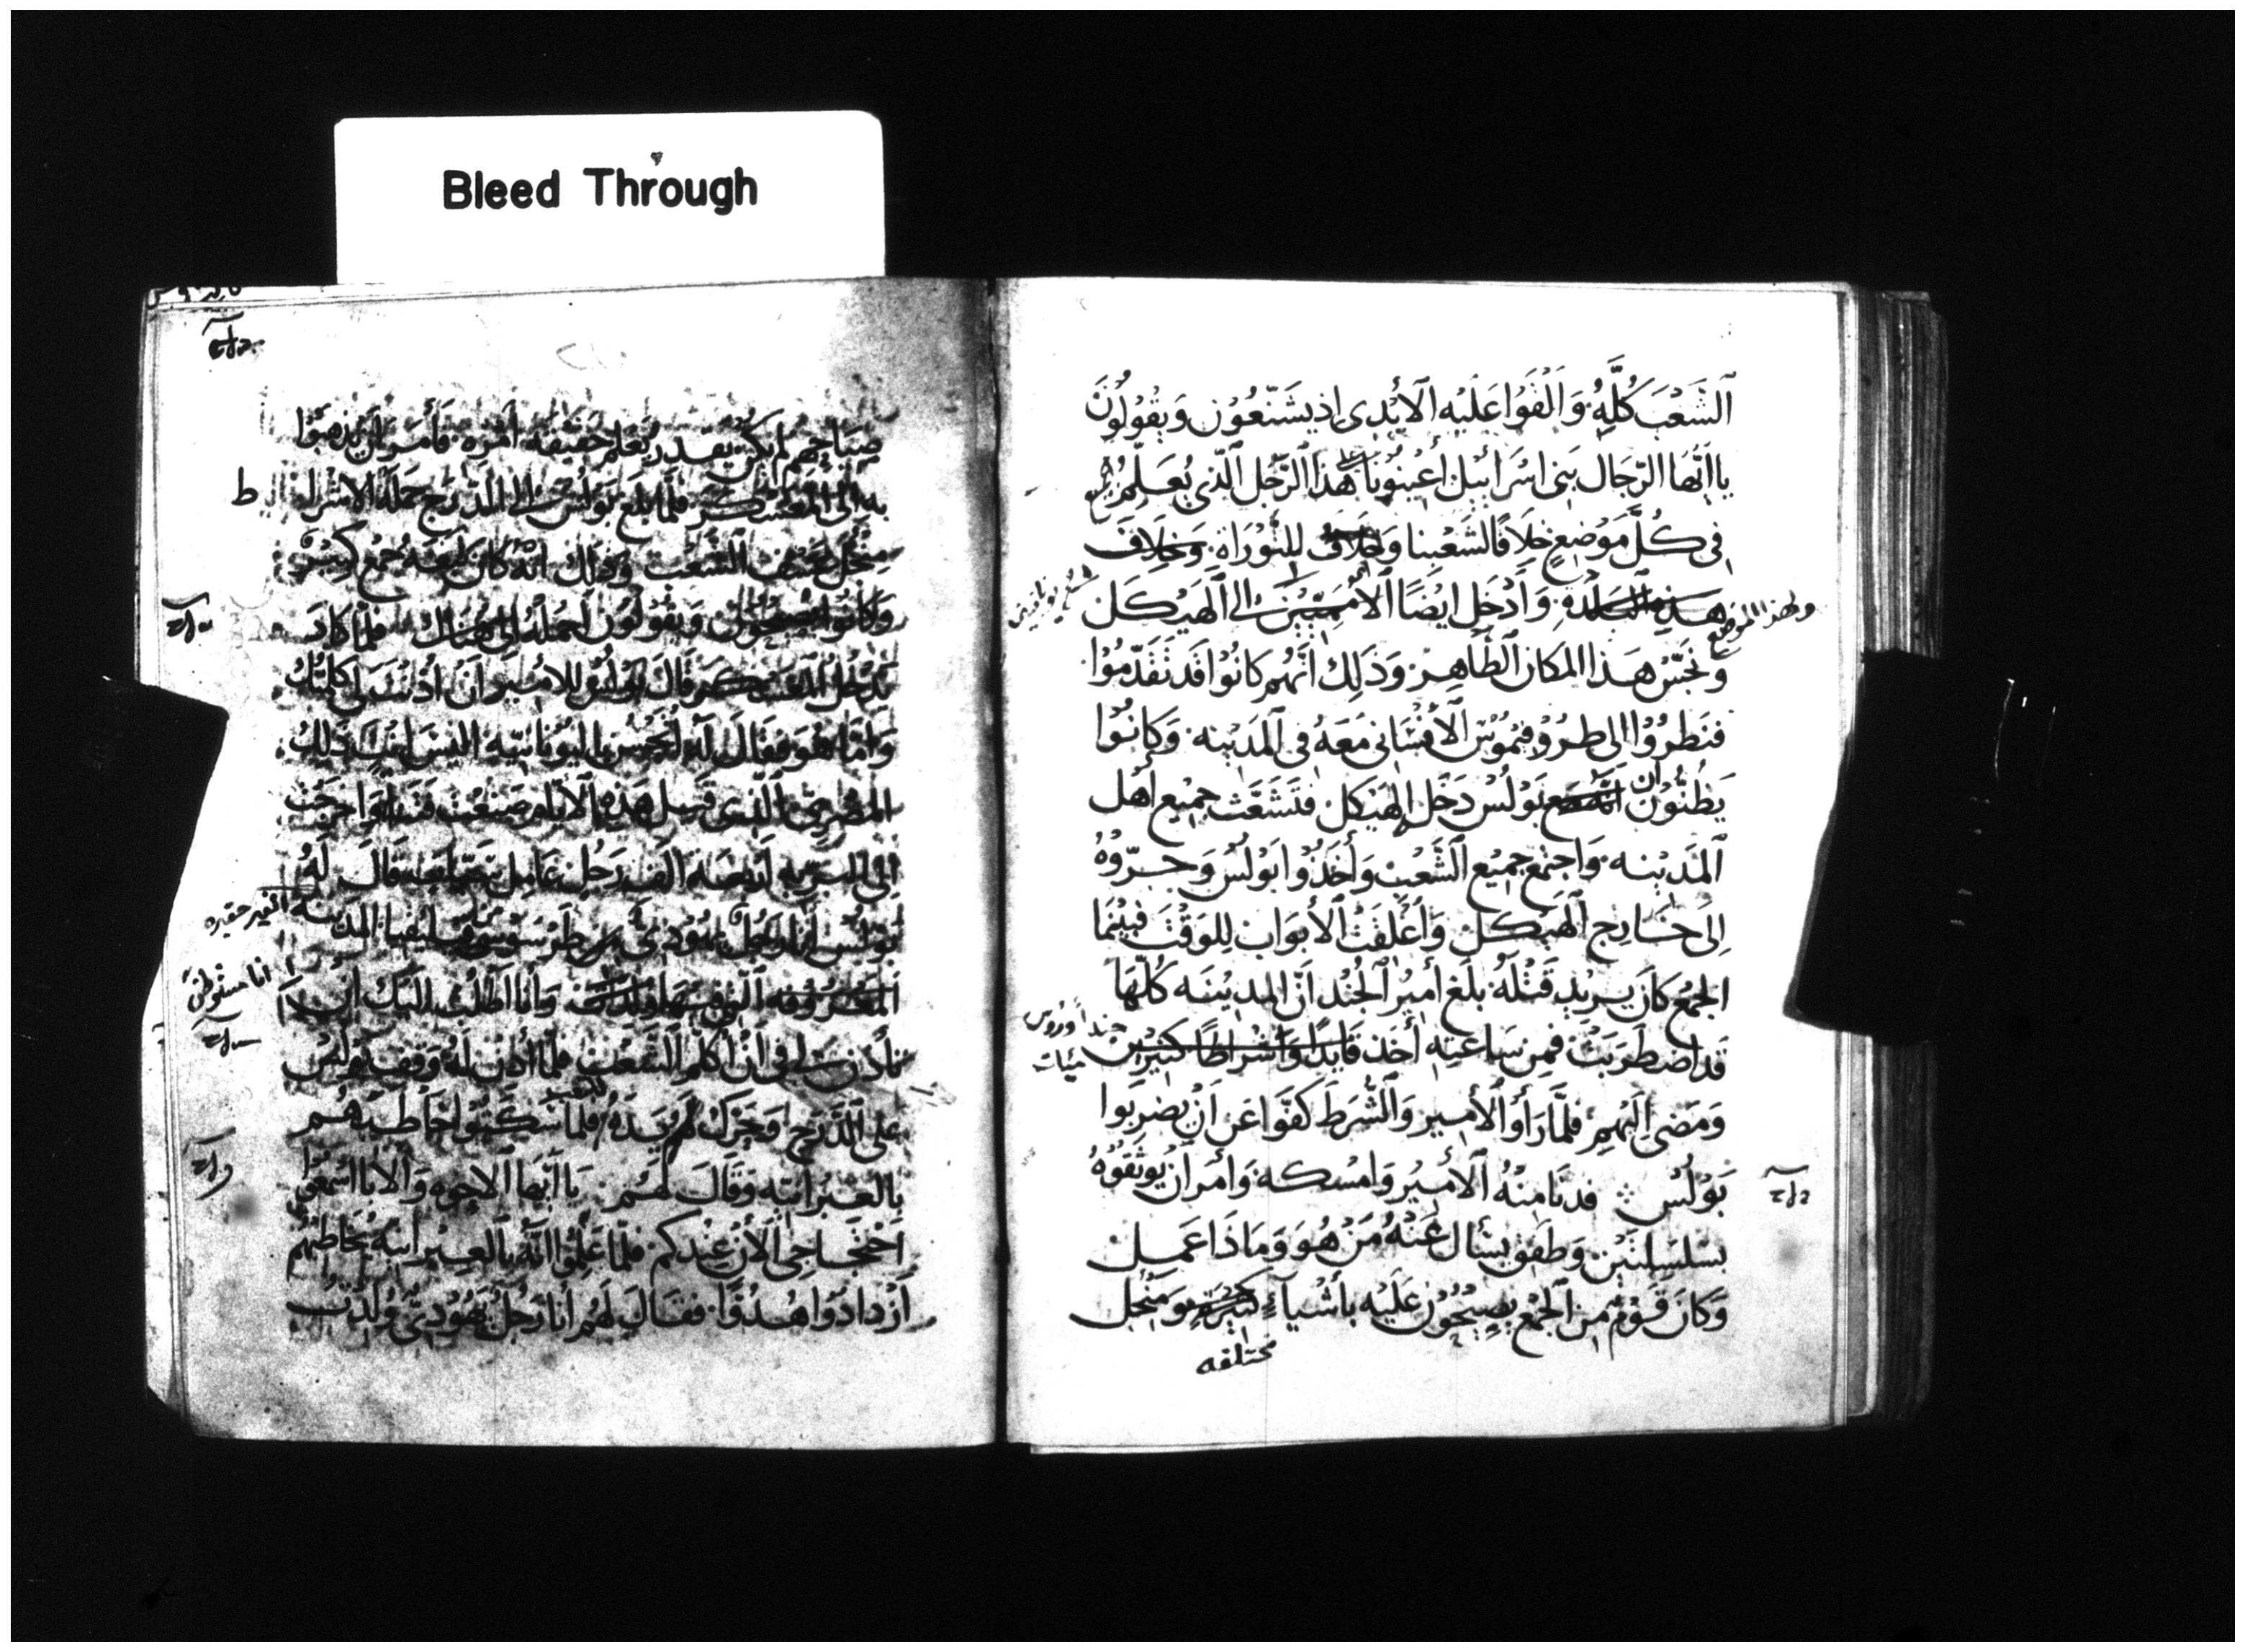 Bleed Through
الشَّعْبَ كُلَّهُ وَالْقَوْا عَلَيْهِ الايْدِى اذ يشَنّعُوْن وَيقُولُونَ
يا ايّها الرّجَال بَنى اسْرَائيل أعْينُونَا على هَذا الرّجُل الّذى يُعَلّم
فى كُلّ مَوْضعٍ خِلَافًا لشَعْبِنا وَخِلَافًا للتَّوْرَاة وَخِلَاف
هذه البلده وَادْخَل ايْضًا الامَمِيّين الى الهَيْكل
ولهذا الموضع
وَنجّسْ هَذا المكَان الطَّاهِر وَذَلِك انَّهُم كانُوْا قَد تقَدّمُوْا
فنَظرُوْا الى طرُوْفِيمُوْس الأفْسَانى مَعَهُ فى المَدينه وَكانُوْا
يَظنُّوْن ان بَوْلُس دَخَل الهَيْكل فتَشَغَّث جميع اهْل
المَدينه وَاجتَمَع جميْع الشَّعْب وَأخَذُوْا بَوْلُس وَجَرّوْهُ
الَى خَارج الهَيْكل وَاغْلقَت الأبوَاب للوَقْتَ فبيْنَما
الجمْع كانَ يريْد قَتْلَهُ بلَغ أميْر الجُنْد انّ المدِيْنَه كُلّهَا
قَد اضطَرَبَت فمِن سَاعَتِه أخَذ قَايدًا وَاشراطًا كثيرين
جندا ورُوس
مئيات
وَمَضى الَيْهِم فلمَّا رَأوْا الأميْر وَالشُّرَط كفّوْا عَن انْ يضربُوا
بَوْلُسْ فدنَا منْهُ الأميْر وَامْسَكه وَأمَر انْ يوثقوْهُ
بسْلسِلتيْن وَطفقَ يسْأل عَنْهُ مَن هُوَ وَمَاذا عَمِل
وَكانَ قَوْمٌ من الجمْع يصيْحُوْن عَلَيْه بأشْيآء كثيرة وَمنْ اجل
مختلفه
صيَاحِهِم لم يكُن يقدر يعْلَم حَقيْقه امْره فأمَر ان يذهبُوا
به الى المعَسْكر فلمّا بلغ بَوْلس الى الدّرَج حَملَهُ الاشرَاط
ط
من اجل عُنْف الشَّعْب وَذلك انّهُ كانَ يتبعَه جمع كثير
وَكانُوا يصيحون وَيقُولُون احملهُ الى هناك فلمّا كادَ
يدخُل المعَسْكر قَالَ بَوْلس للاميْر انْ اذنتَ لى كلّمتكَ
وَامّا هُوَ فقَالَ لَه اتحْسن باليُونَانيّه اليْسَ انتَ ذلِكَ
المصْرى الّذى قبل هَذه الأيّام صَنعْت فتنًا وَاخرجْت
الى البريه ارْبعَه آلف رَجُل عَامِل سَيّيات فقَالَ لَهُ
بَوْلُس أنا رَجُل يهُوْدىّ من طَرسُوسَ من قيليقيا المَدينه
الغير حقيره
المعْرُوْفه الّتى فيها وُلدت وَانَا اطْلُب اليْك انْ
انا مستوطن
تأذن لى فى انْ اكلّم الشّعْب فلمّا أذن له وَقف بَوْلس
عَلى الدّرج وَحَرّك لهم يَدَهُ فلمّا سَكتُوا خاطبهُم
بالعبْرَانيّه وَقَالَ لهُم يَا ايّها الاخوه وَالابا اسْمَعُوْا
احْتجَاجِى الأنْ عِنْدكم فلمّا عَلمُوْا انّهُ بالعبرَانيّه يخَاطبُهُم
ازْدَادُوا هُدُوًّا فقَالَ لهُم أنا رَجُلٌ يَهُوْدىّ وُلدْتُ